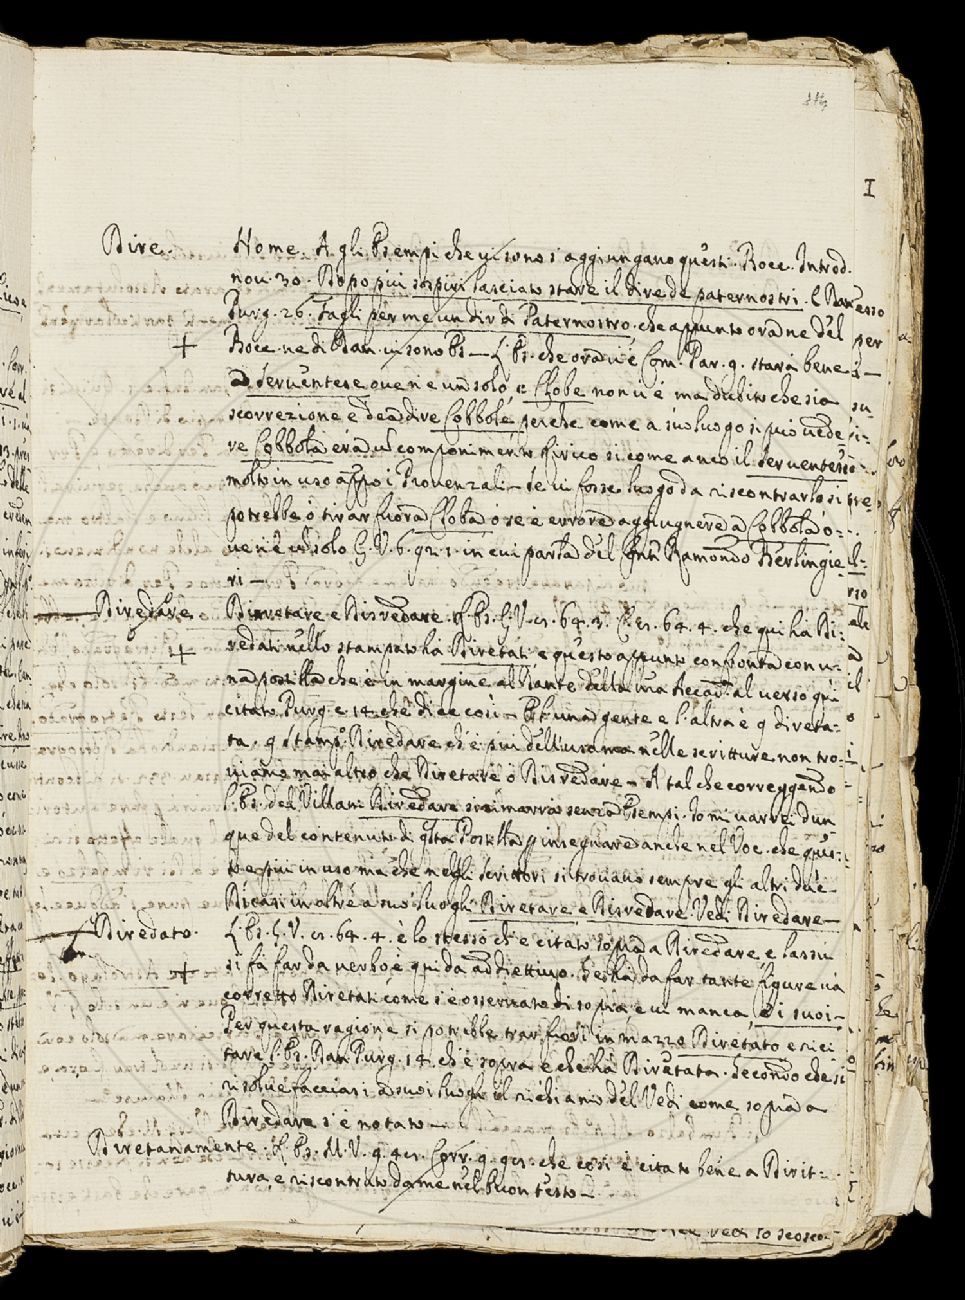 I
Dire. Nome. A gli Es empi che ui sono s'aggiungano questi. Bocc. Introd.
nou. 30. Dopo piu sospiri lasciato stare il dire de paternostri. E Dan
Purg. 26. Fagli per me un dir di Paternostro. che appunto ora ne del
+ Bocc. ne di Dan. ui sono Es — L'Es. che ora u'è Com. Par. 9. starà bene
a Seruentese oue n'è un solo, e Clobe non u'è ma dubito che sia
scorrezione e deua dire Cobbole perche come a suo luogo si può uede-
re Cobbola era un componimento lirico si come anco il Seruentese
molto in uso appo i Prouenzali — se ui fosse luogo da riscontrarlo si
potrebbe o tirar fuora Cloba o se è errore aggiugnere a Cobbola o-
ue n'è un solo G. V. 6. 92. 1. in cui parla del Raimondo Berlingie-
ri —
Diredare Diretare e Disredare. L'Es. G. V. cr. 64. 3. C. cr. 64. 4. che qui ha Di-
+ redati nello stampato ha Diretati, e questo appunto confronta con u-
na postilla che è in margine al Dante della sua Accad. al uerso qui
citato Purg. c. 14 che dice così — Et l'una gente e l'altra è q direta-
ta. q Stamp. Diredare ch'è piu dell'usanza nelle scritture non tro-
uiamo mai altro che Diretare o Disredare — A tal che correggendo
l'Es. del Villani Diredare si rimarria senza Esempi. Io mi uarrei dun
que del contenuto di qsta Postilla p insegnare anche nel Voc. che ques-
to e piu in uso ma che negli scrittori si trouano sempre gli altri due
Dicasi inoltre a suo luoghi Diretare e Disredare Vedi Diredare —
Diredato. L'Es. G. V. cr. 64. 4. è lo stesso ch'è citato sopra a Diredare, e lassu
+ si fa far da uerbo e qui da addiettiuo. Se ha da far tante figure ua
corretto Diretati come s'è osseruato di sopra e ui manca, e i suoi —
Per questa ragione si potrebbe trar fuori in mazzo Diretato e ri ci
tare l'Es. Dan. Purg. 14. ch'è sopra e che ha Diretata. Secondo che si
risolue facciasi a suoi luoghi il richiamo del Vedi come sopra a
Diredare s'è notato —
Diretanamente. L'Es. M. V. 9. 4 cr. Corr. 9. 9 cr. che così è citato bene a Dirit-
tura, e riscontrato da me nel buon testo —